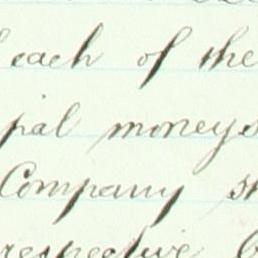 each of the
pal moneys
Company s
respective